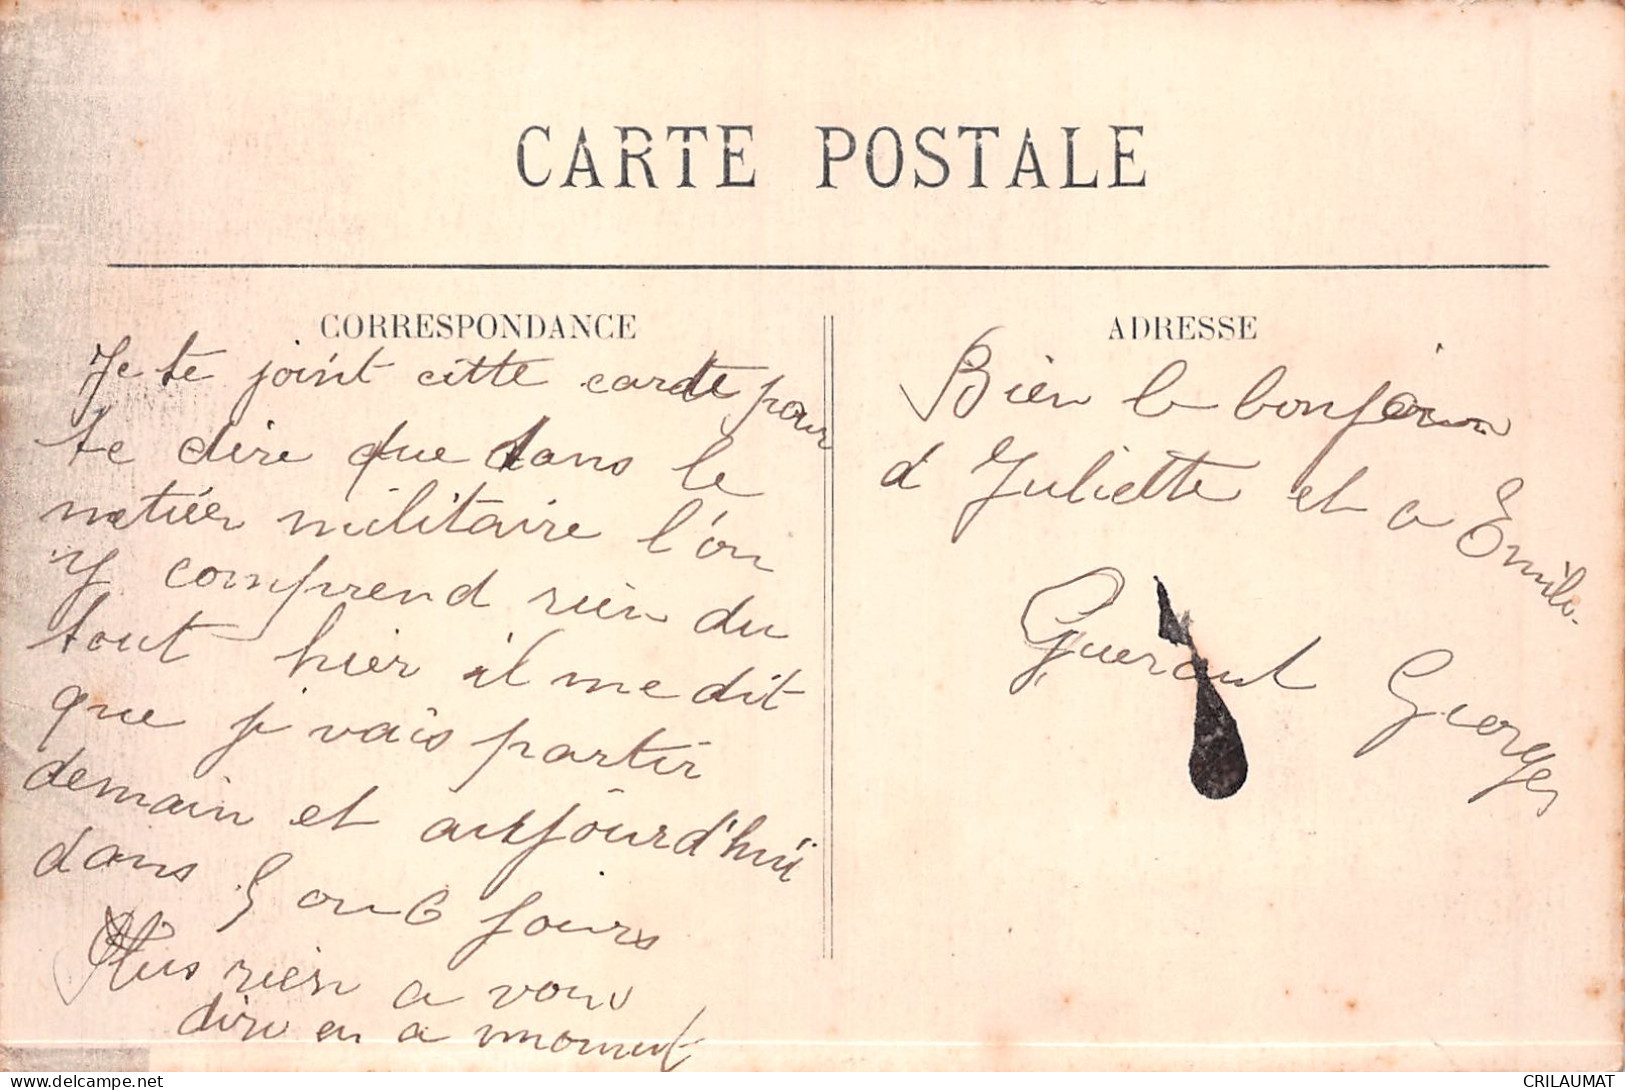 CARTE POSTALE
CORRESPONDANCE
Je te joint cette carte pour
te dire que dans le
metiér militaire l'on
y comprend rien du
tout hier il me dit
que je vais partir
demain et aujourd'hui
dans 5 ou 6 jours
Plus rien a vous
dire en a moment
ADRESSE
Bien le bonjour
a Juliette et a Emile.
Gueraut Georges
CRILAUMAT